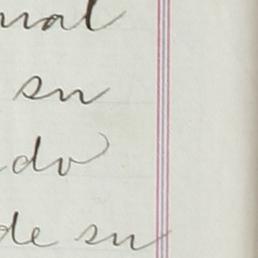 nual
su
do
de su